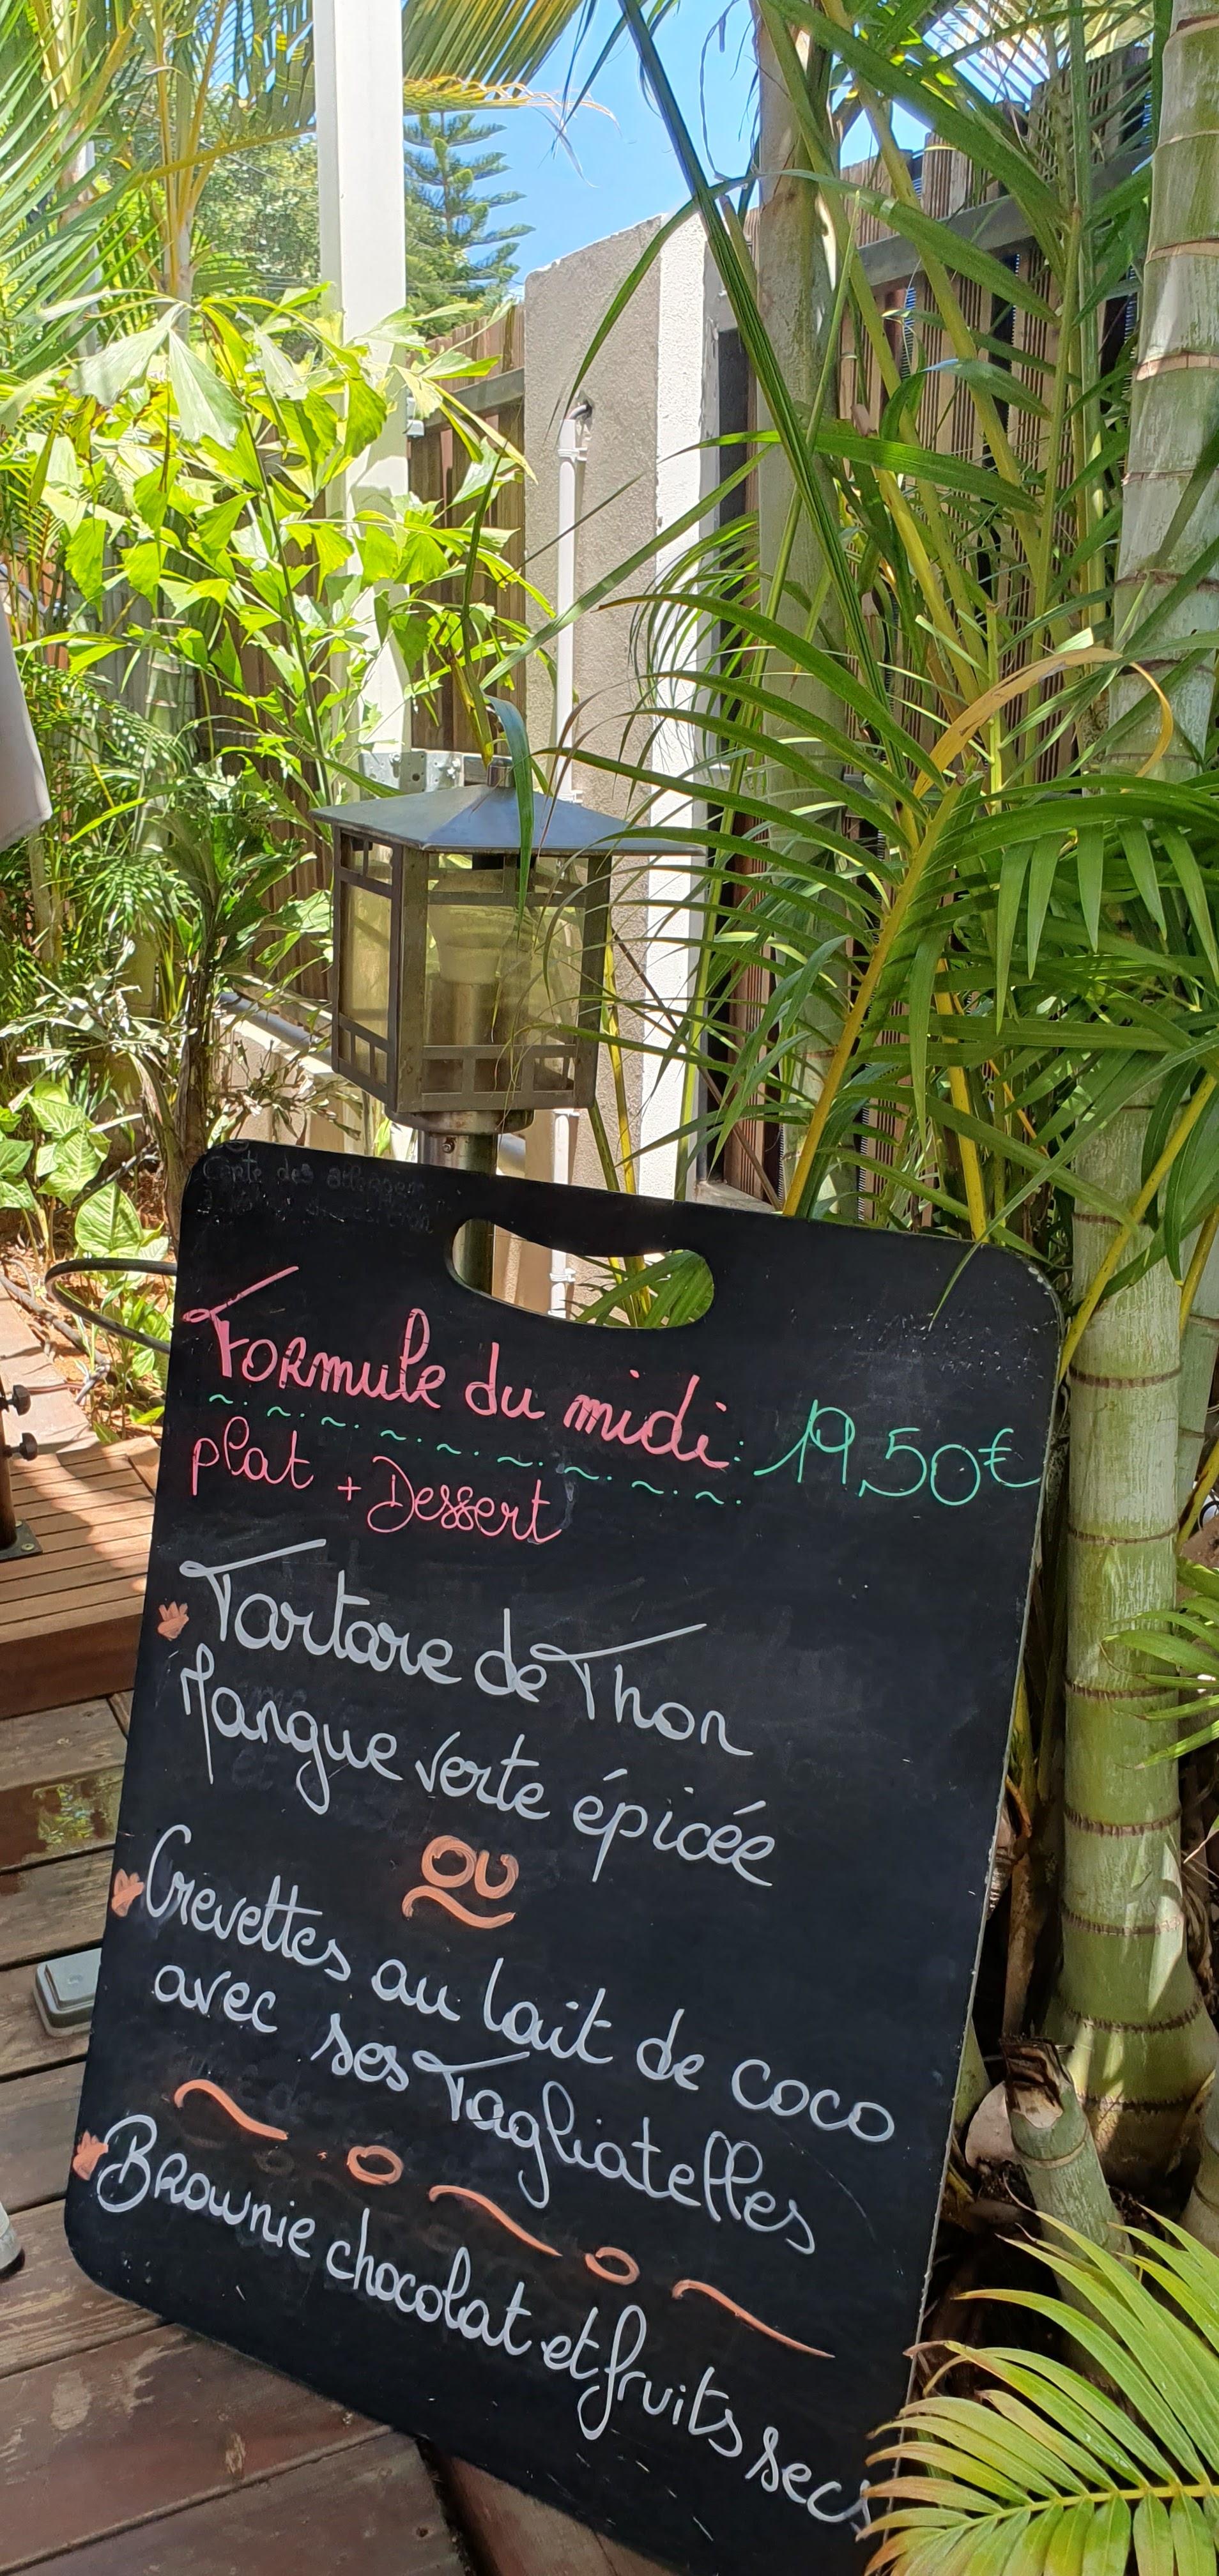 Carte des
Formule du midi : 19,50€
plat + Dessert
Tartare de Thon
Mangue verte épicée
ou
Crevettes au lait de coco
avec ses Tagliatelles
Brownie chocolat et fruits secs